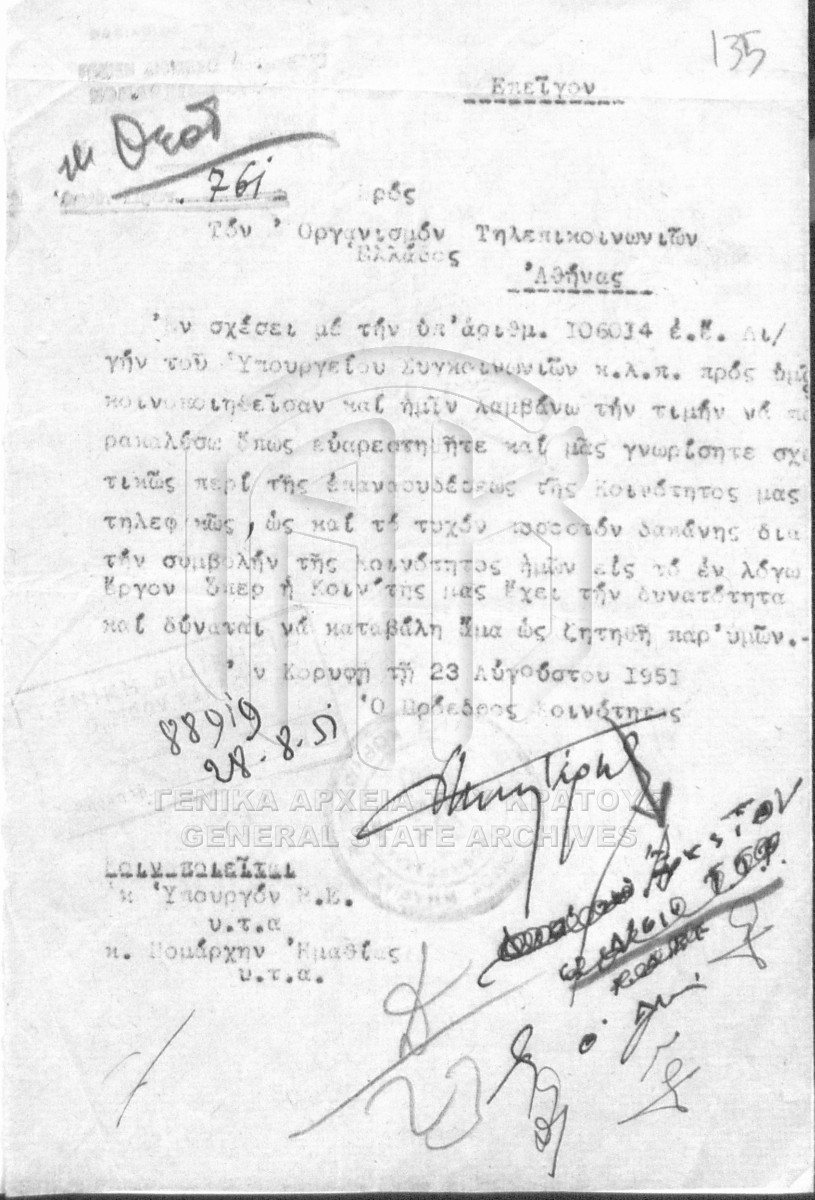 135
Επεῖγον
761
Πρός
Τόν Ὀργανισμόν Τηλεπικοινωνιῶν
Ἑλλάδος
Ἀθήνας
Ἐν σχέσει μέ τήν ὑπ'ἀριθμ. 106014 ἐ.ἔ. Δι/
γήν τοῦ Ὑπουργείου Συγκοινωνιῶν κ.λ.π. πρός ὑμᾶς
κοινοποιηθεῖσαν καί ἡμῖν λαμβάνω τήν τιμήν νά πα
ρακαλέσω ὅπως εὐαρεστηθῆτε καί μᾶς γνωρίσητε σχε
τικῶς περί τῆς ἐπανασυδέσεως τῆς Κοινότητος μας
τηλεφ κῶς, ὡς καί τό τυχόν ποσοστόν δαπάνης δια
τήν συμβολήν τῆς Κοινότητος ἡμῶν εἰς τό ἐν λόγω
ἔργον ὅπερ ἡ Κοιν'της μας ἔχει τήν δυνατότητα
καί δύναται νά καταβάλη ἅμα ὡς ζητηθῆ παρ'υμῶν.-
Ἐν Κορυφῇ τῇ 23 Αὐγούστου 1951
Ὁ Πρόεδρος Κοινότητος
88919
28-8-51
ΓΕΝΙΚΑ ΑΡΧΕΙΑ ΤΟΥ ΚΡΑΤΟΥΣ
GENERAL STATE ARCHIVES
Κοινοποιεῖται
κ Ὑπουργόν Β.Ε.
υ.τ.α
κ. Νομάρχην Ἡμαθίας
υ.τ.α.